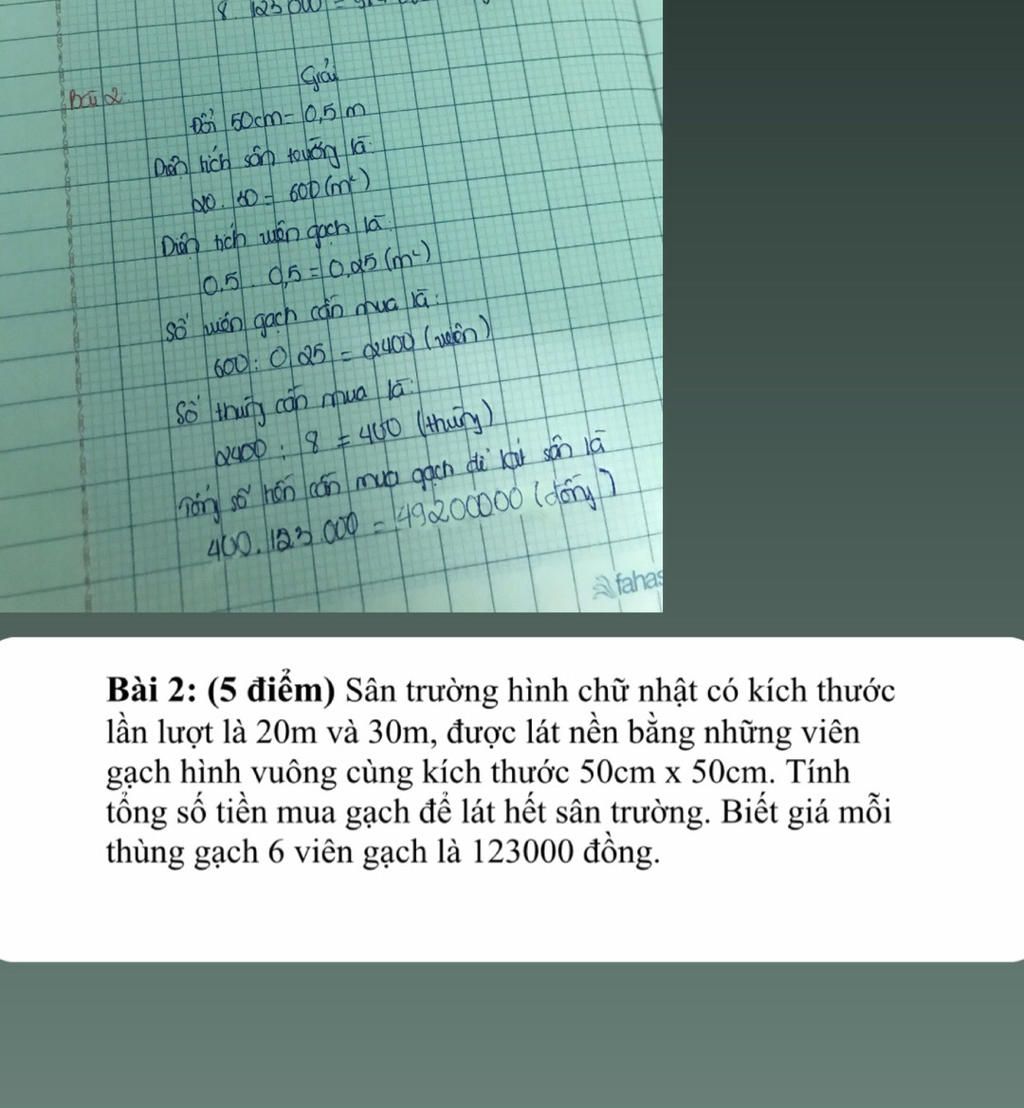 8. 123 000 =
Bài 2:
Giải
Đổi 50cm = 0,5 m
Diện tích sân trường là:
20. 30 = 600 (m²)
Diện tích viên gạch là:
0,5 . 0,5 = 0,25 (m²)
Số viên gạch cần mua là:
600 : 0,25 = 2400 (viên)
Số thùng cần mua là:
2400 : 8 = 400 (thùng)
Tổng số tiền cần mua gạch để lát sân là
400. 123 000 = 49200000 (đồng)
fahas
Bài 2: (5 điểm) Sân trường hình chữ nhật có kích thước
lần lượt là 20m và 30m, được lát nền bằng những viên
gạch hình vuông cùng kích thước 50cm x 50cm. Tính
tổng số tiền mua gạch để lát hết sân trường. Biết giá mỗi
thùng gạch 6 viên gạch là 123000 đồng.